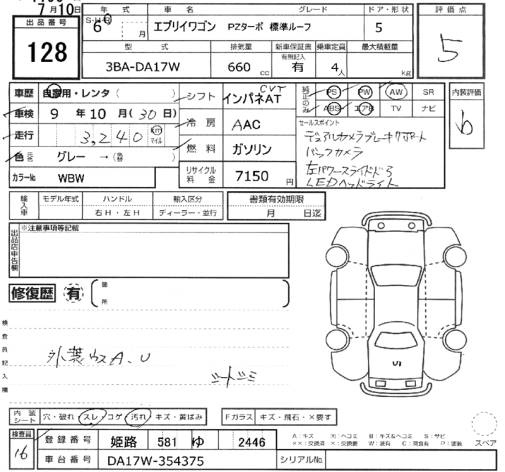 7月10日
出品番号 128
年式 車名 グレード ドア・形状 評価点
6 月 エブリイワゴン PZターボ 標準ルーフ 5 5
型式 排気量 新車保証書 乗車定員 最大積載量
3BA-DA17W 660 cc 有無記入 有 4人 kg
車歴 自家用・レンタ( )
車検 9年10月(30日)
走行 3,240 km マイル
色 元色 グレー→(替色 )
カラーNo WBW
シフト インパネAT CVT
冷房 AAC
燃料 ガソリン
リサイクル料金 7150円
純正のみ PS PW AW SR
ABS エアB TV ナビ
内装評価 b
セールスポイント
デュアルカメラブレーキサポート
バックカメラ
左パワースライドドア
LEDヘッドライト
輸入車 モデル年式 ハンドル 輸入区分
右H・左H ディーラー・並行
書類有効期限
月 日迄
出品店申告欄 ※注意事項等記載
修復歴 有 箇所
検査員記入欄
外装ウスA、U
シートシミ
U1
内装シート 穴・破れ スレ コゲ 汚れ キズ・黄ばみ
Fガラス キズ・飛石・×要す
スペア
検査員 16
登録番号 姫路 581 ゆ 2446
車台番号 DA17W-354375
シリアルNo.